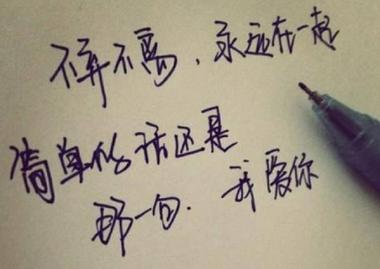 不弃不离、永远在一起
简单的话还是
那一句．我爱你